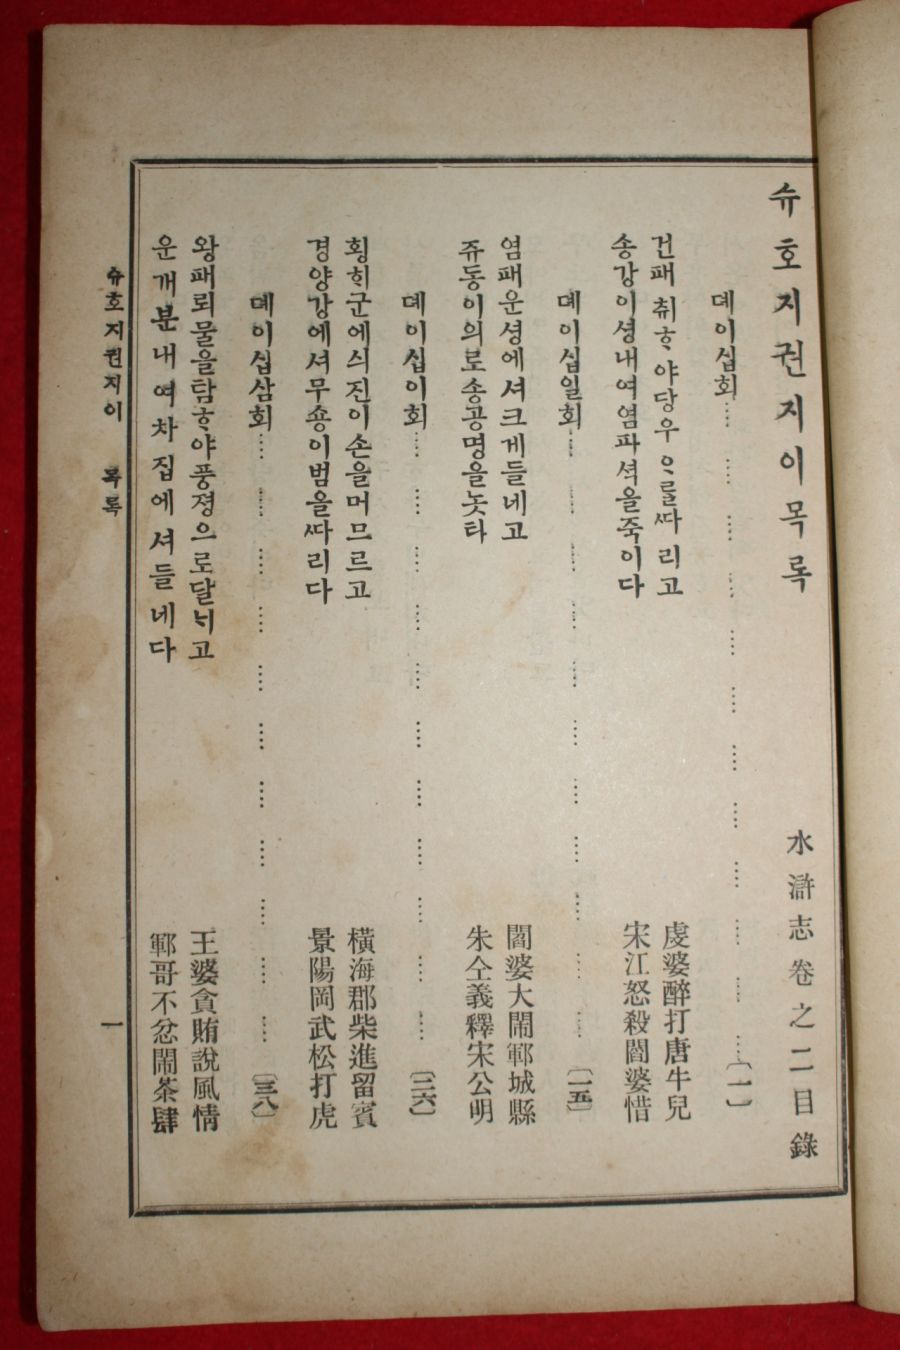 슈호지권지이목록 水滸志卷之二目錄
뎨이십회 〔一〕
건패취ᄒᆞ야당우ᄋᆞ를ᄯᅡ리고 虔婆醉打唐牛兒
송강이셩내여염파셕을죽이다 宋江怒殺閻婆惜
뎨이십일회 〔一五〕
염패운셩에셔크게들네고 閻婆大鬧鄆城縣
쥬동이의로송공명을놋타 朱仝義釋宋公明
뎨이십이회 〔二六〕
횡ᄒᆡ군에싀진이손을머므르고 橫海郡柴進留賓
경양강에셔무숑이범을ᄯᅡ리다 景陽岡武松打虎
뎨이십삼회 〔三八〕
왕패뢰물을탐ᄒᆞ야풍졍으로달ᄂᆡ고 王婆貪賄說風情
운개분내여차집에셔들네다 鄆哥不忿鬧茶肆
슈호지권지이 목록 一